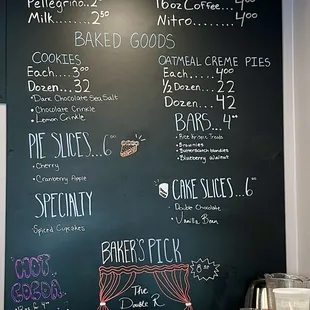 Pellegrino..2⁵⁰
Milk........2⁵⁰
16oz Coffee...4⁰⁰
Nitro.......4⁰⁰
BAKED GOODS
COOKIES
Each....3⁰⁰
Dozen...32
• Dark Chocolate Sea Salt
• Chocolate Crinkle
• Lemon Crinkle
OATMEAL CREME PIES
Each.....4⁰⁰
½ Dozen...22
Dozen....42
BARS...4⁰⁰
• Rice Krispie Treats
• Brownies
• Butterscotch Blondies
• Blueberry Walnut
PIE SLICES...6⁰⁰
• Cherry
• Cranberry Apple
CAKE SLICES...6⁰⁰
• Double Chocolate
• Vanilla Bean
SPECIALTY
Spiced Cupcakes
BAKER'S PICK
The
Double R
HOT
COCOA